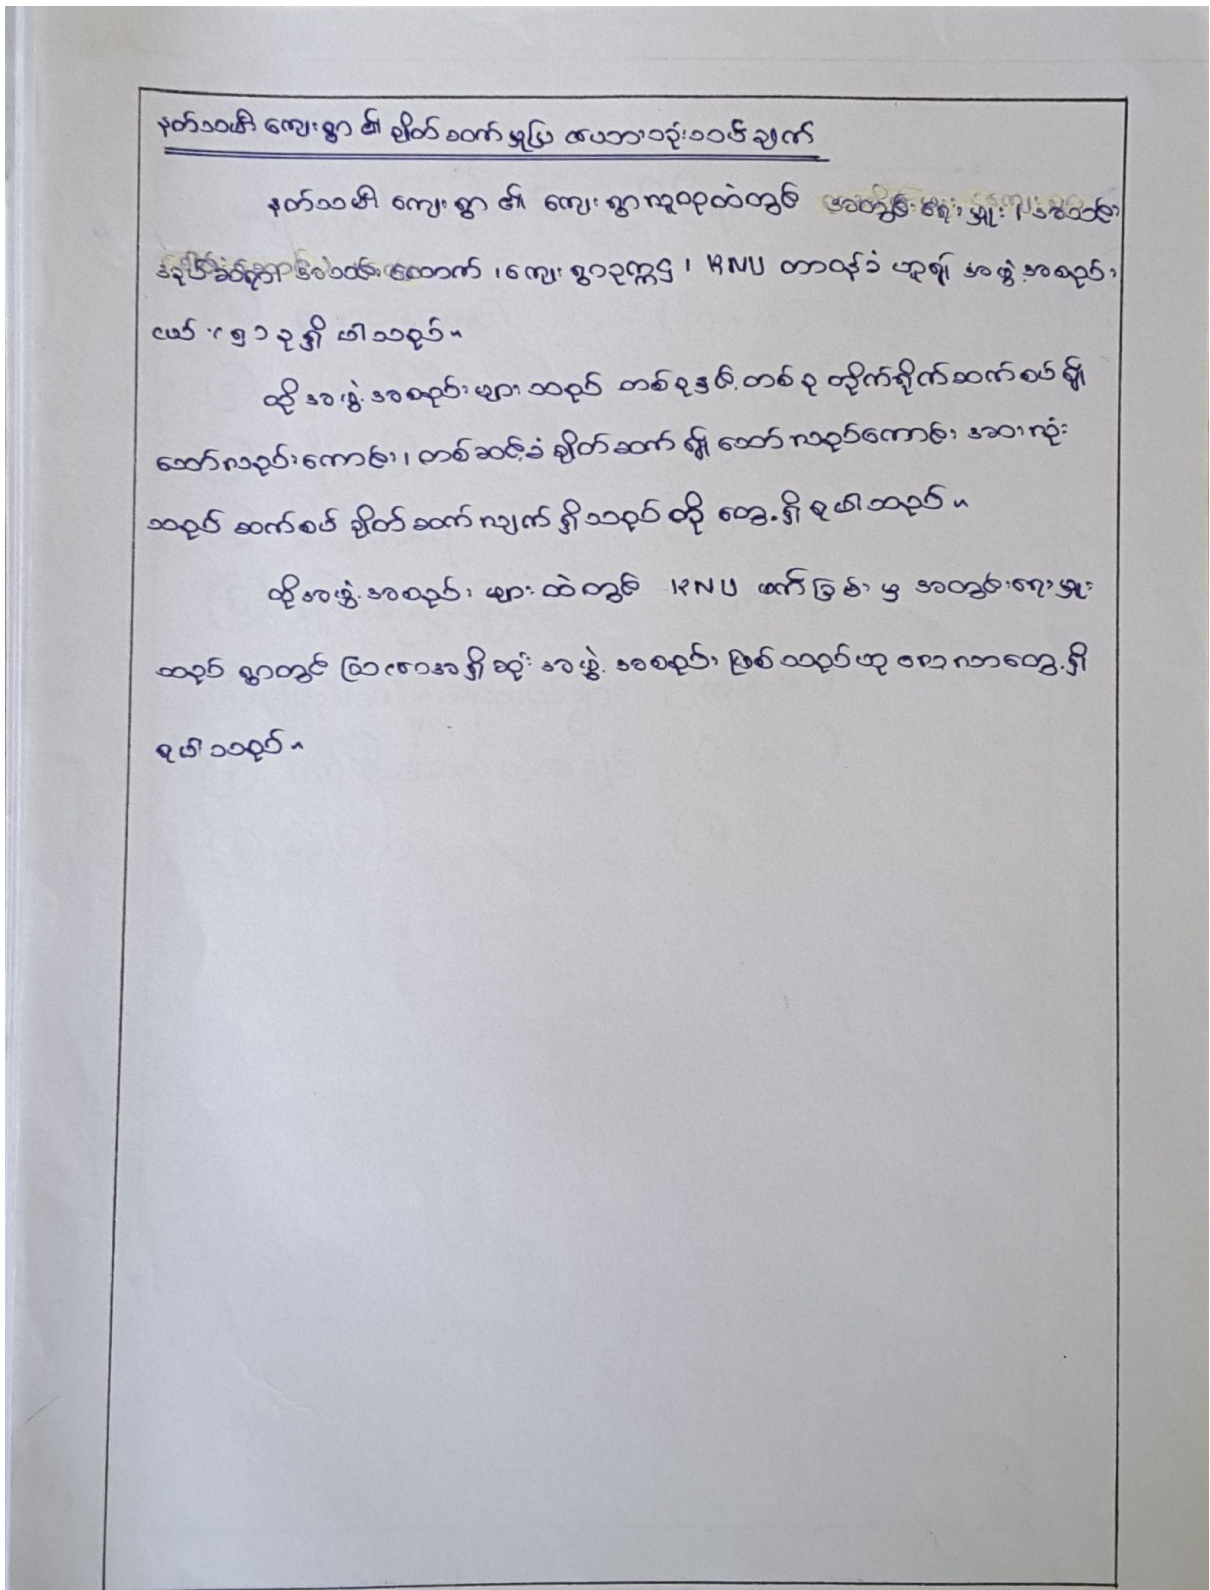 နတ်သမီး ကျေးရွာ ၏ ချိတ်ဆက်မှုပြ ဇယားသုံးသပ်ချက်
နတ်သမီး ကျေးရွာ ၏ ကျေးရွာလူထုထဲတွင် အတွင်းရေးမှူး၊
အိမ်းထောက်၊ ကျေးရွာဥက္ကဋ္ဌ၊ KNU တာဝန်ခံ ဟူ၍ အဖွဲ့အစည်း
ငယ် (၅) ခု ရှိ ပါသည်။
ထိုအဖွဲ့အစည်းများသည် တစ်ခုနှင့်တစ်ခု တိုက်ရိုက်ဆက်စပ်၍
သော်လည်းကောင်း၊ တစ်ဆင့်ခံချိတ်ဆက်၍ သော်လည်းကောင်း အားလုံး
သည် ဆက်စပ် ချိတ်ဆက်လျက် ရှိသည် ကို တွေ့ရှိရပါသည်။
ထိုအဖွဲ့အစည်းများထဲတွင် KNU ဖက်ခြမ်းမှ အတွင်းရေးမှူး
သည် ရွာတွင် ဩဇာအရှိဆုံး အဖွဲ့အစည်းဖြစ်သည်ဟု လေ့လာတွေ့ရှိ
ရပါသည်။